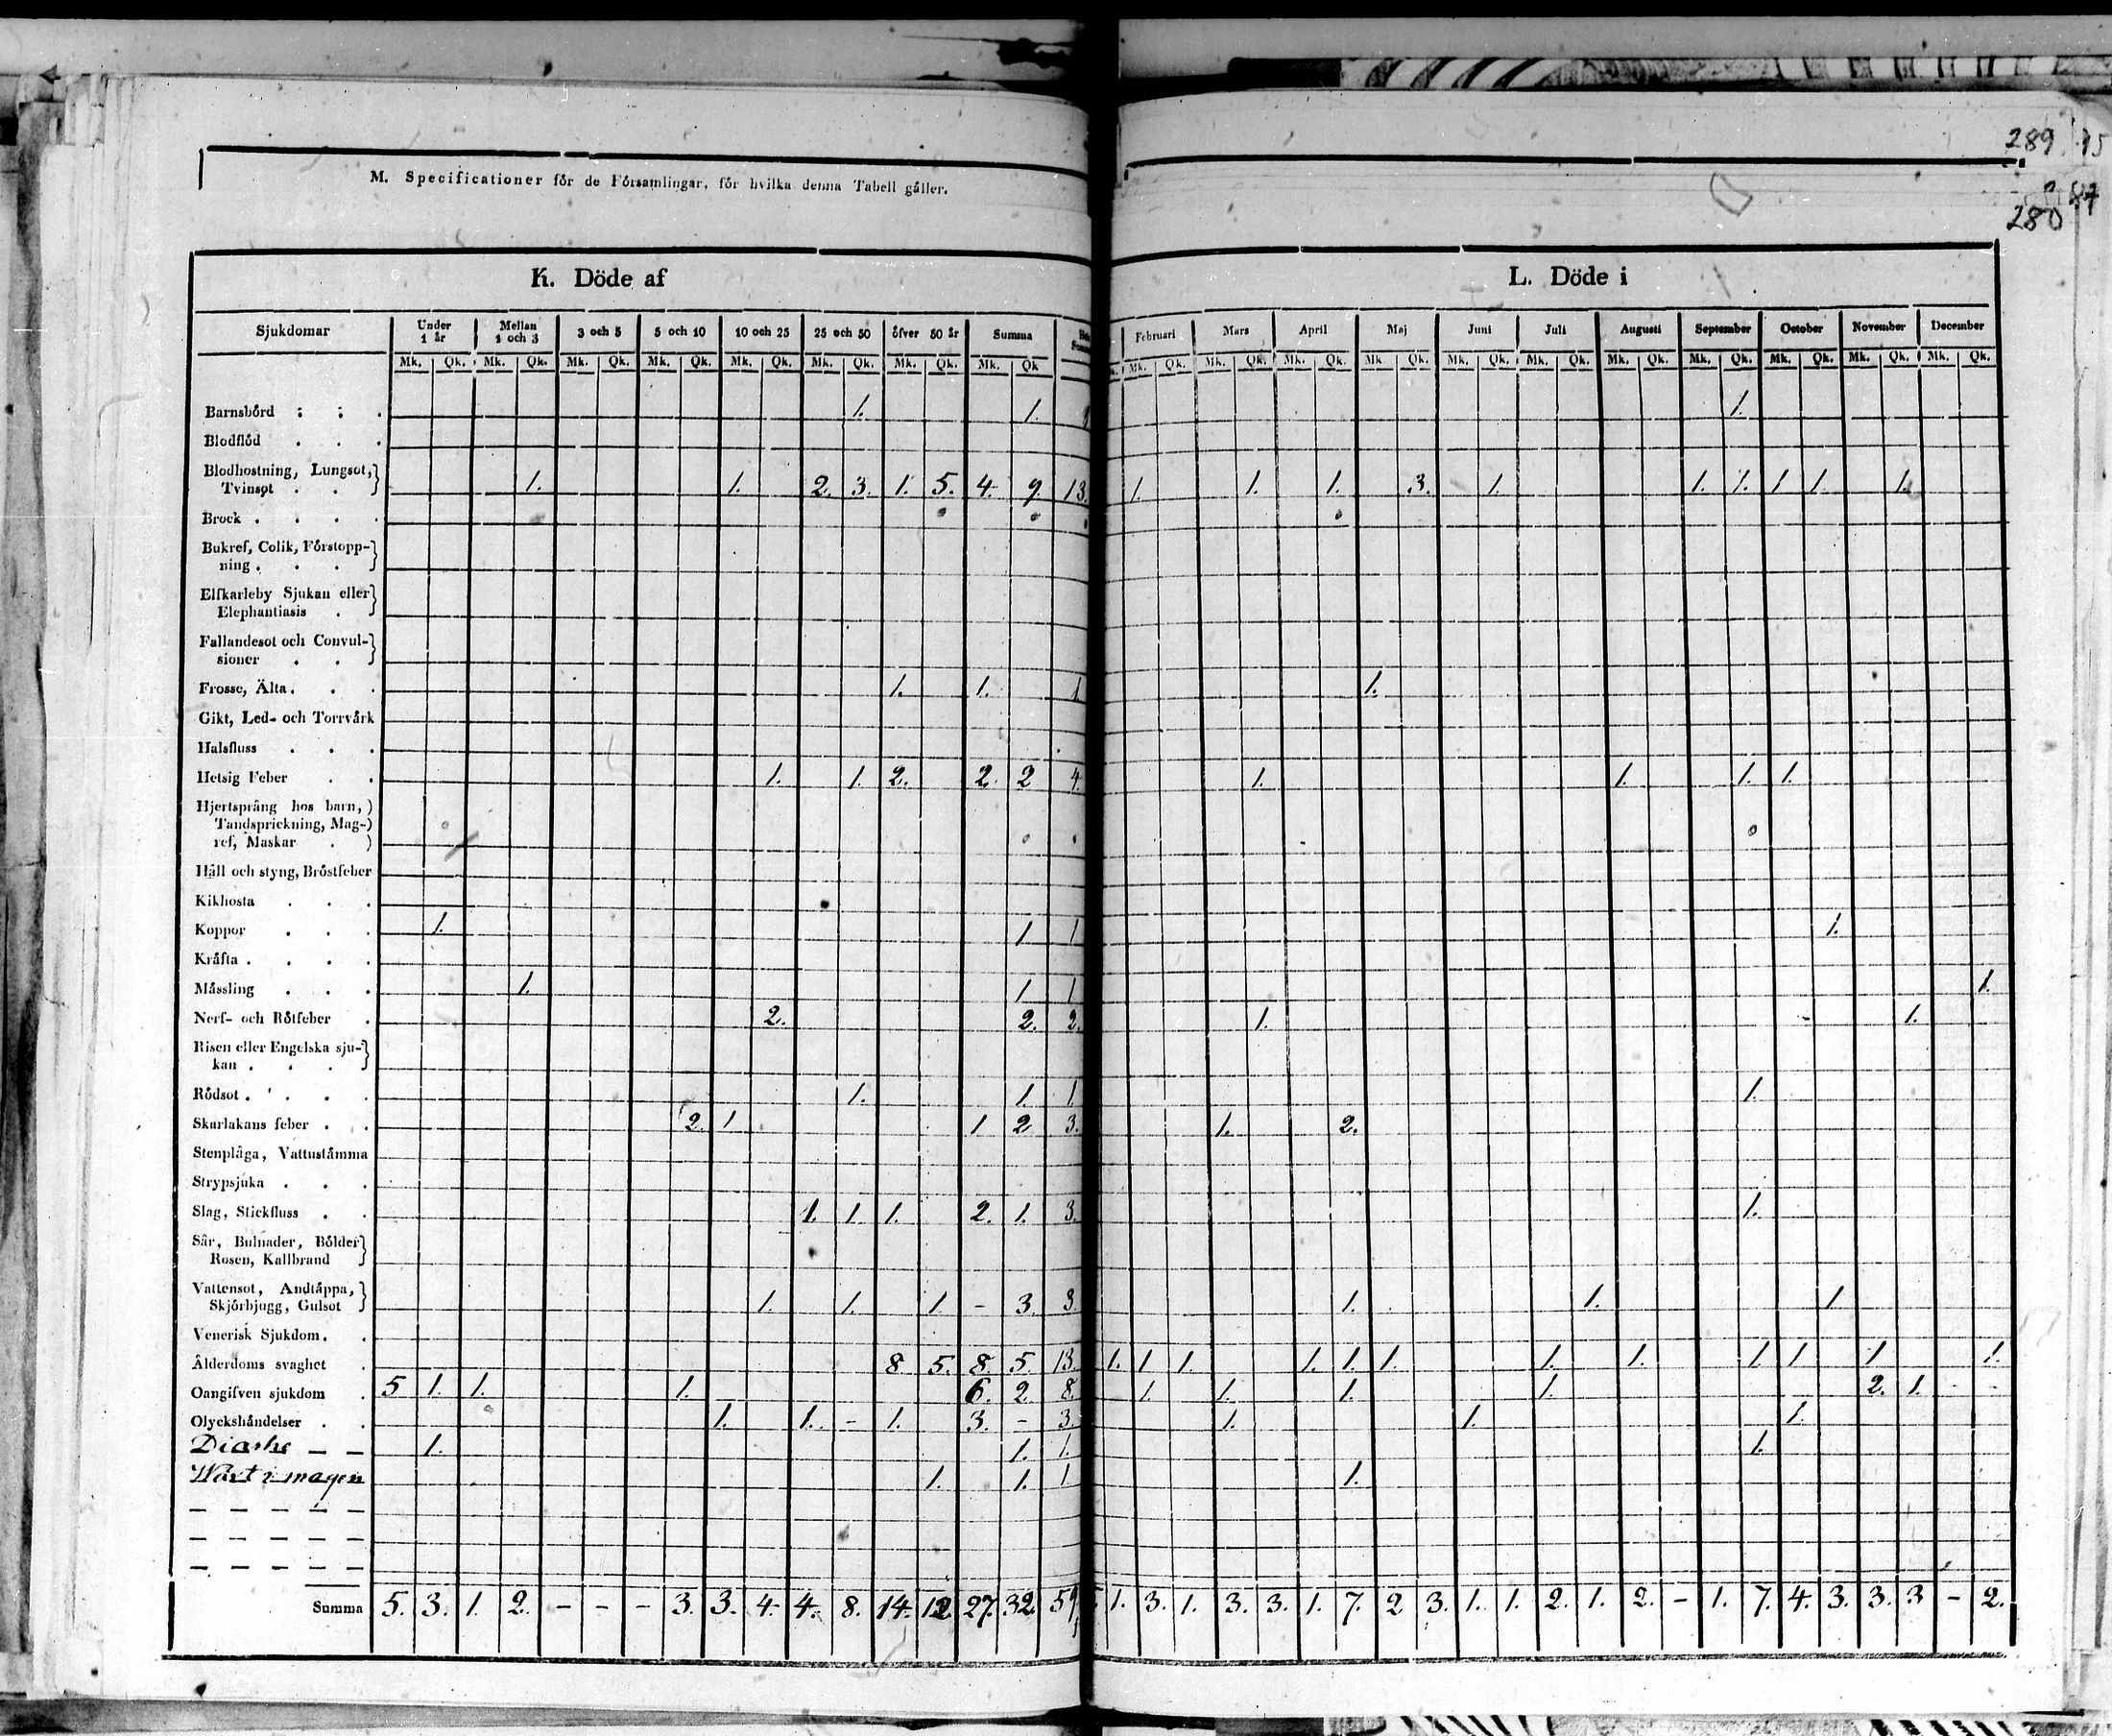 289 75
280 87
M. Specificationer för de Församlingar, för hvilka denna Tabell gäller.
K. Döde af
Sjukdomar | Under 1 år | Mellan 1 och 3 | 3 och 5 | 5 och 10 | 10 och 25 | 25 och 50 | öfver 50 år | Summa
Mk. Qk. Mk. Qk. Mk. Qk. Mk. Qk. Mk. Qk. Mk. Qk. Mk. Qk. Mk. Qk
Barnsbörd : ; . 1. 1.
Blodflöd . . .
Blodhostning, Lungsot,
Tvinsot . . 1. 1. 2. 3. 1. 5. 4. 9. 13.
Brock . . . .
Bukref, Colik, Förstopp-
ning . . .
Elfkarleby Sjukan eller
Elephantiasis .
Fallandesot och Convul-
sioner . .
Frosse, Älta . . . 1. 1. 1
Gikt, Led- och Torrvärk
Halsfluss . . .
Hetsig Feber . . 1. 1. 2. 2. 2 4.
Hjertsprång hos barn,
Tandsprickning, Mag-
ref, Maskar .
Håll och styng, Bröstfeber
Kikhosta . . .
Koppor . . . 1. 1 1
Kräfta . . . .
Mässling . . . 1. 1 1
Nerf- och Rötfeber . 2. 2. 2.
Risen eller Engelska sju-
kan . . .
Rödsot . . . . 1. 1. 1
Skarlakans feber . . 2. 1 1 2 3.
Stenplåga, Vattustämma
Strypsjuka . . .
Slag, Stickfluss . . 1. 1. 1. 2. 1. 3.
Sår, Bulnader, Bölder
Rosen, Kallbrand
Vattensot, Andtäppa,
Skjörbjugg, Gulsot 1. 1. 1. - 3. 3.
Venerisk Sjukdom . .
Ålderdoms svaghet . 8. 5. 8. 5. 13.
Oangifven sjukdom . 5 1. 1. 1. 6. 2. 8.
Olyckshändelser . . 1. 1. - 1. 3. - 3.
1. 1. 1.
Wärk i magen 1. 1. 1
Summa 5. 3. 1. 2. - - - 3. 3. 4. 4. 8. 14. 12. 27. 32. 59
L. Döde i
Februari | Mars | April | Maj | Juni | Juli | Augusti | September | October | November | December
Mk. Qk. Mk. Qk. Mk. Qk. Mk Qk. Mk. Qk. Mk. Qk. Mk. Qk. Mk. Qk. Mk. Qk. Mk. Qk. Mk. Qk.
1.
1. 1. 1. 3. 1. 1. 1. 1 1. 1.
1.
1. 1. 1. 1.
1.
1.
1. 1.
1.
1. 2.
1.
1. 1. 1.
1. 1 1. 1. 1. 1. 1. 1. 1. 1 1 1.
1. 1. 1. 1. 2. 1.
1. 1. 1.
1.
1.
1. 3. 1. 3. 3. 1. 7. 2 3. 1. 1. 2. 1. 2. - 1. 7. 4. 3. 3. 3 - 2.